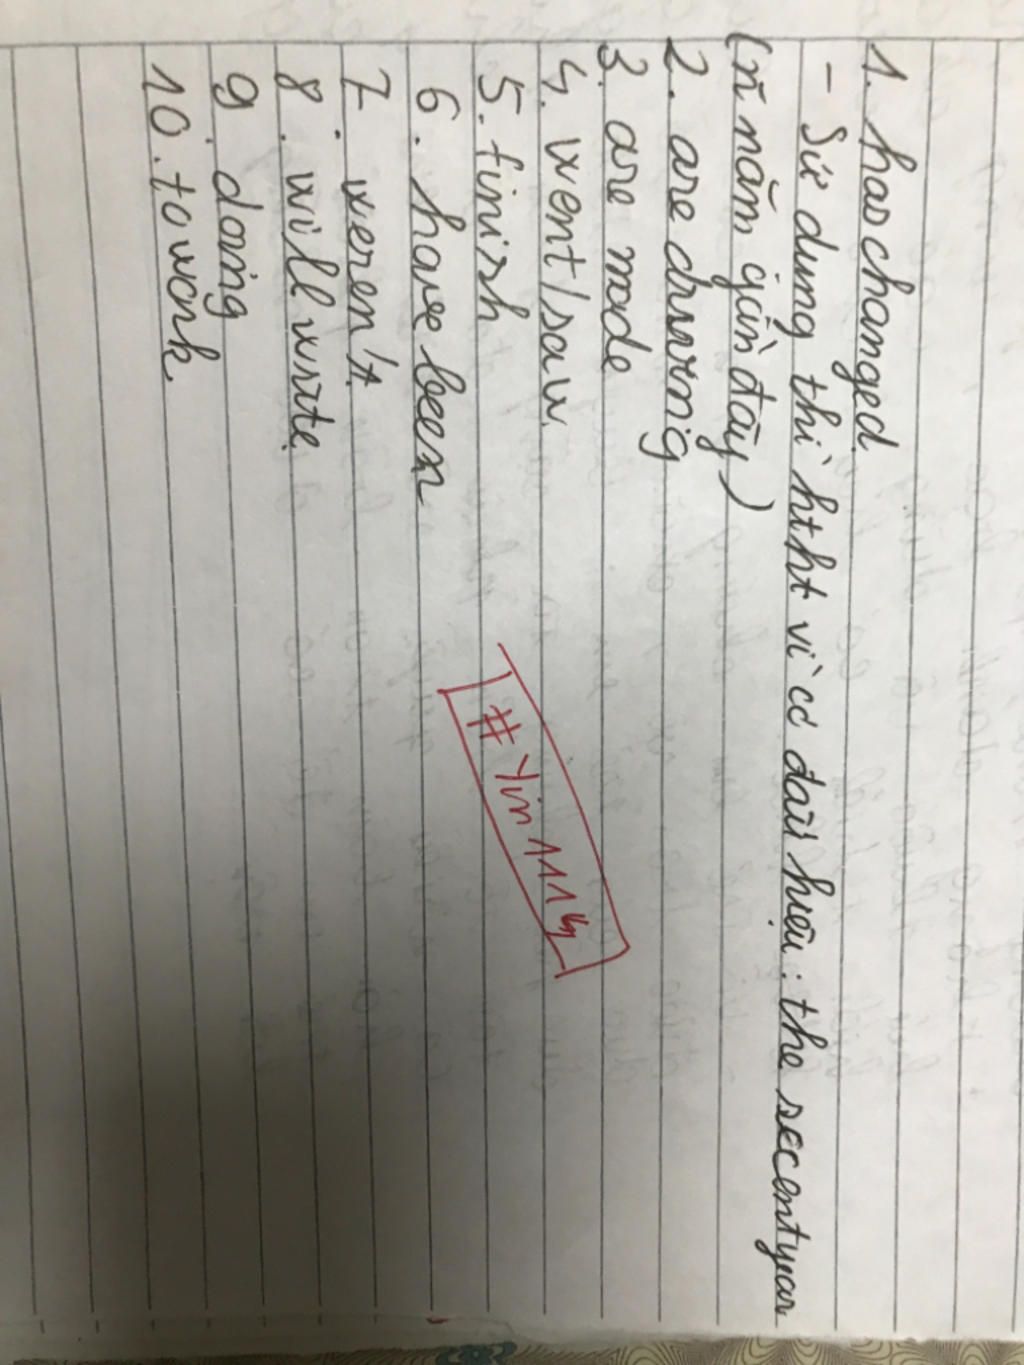 1. has changed.
- Sử dụng thì htht vì có dấu hiệu: the secent year
(n năm gần đây)
2. are druving
3. are made
4. went/saw.
5. finish
6. have been
7. weren't.
8. will write.
9. doing
10. to work
#Yin111